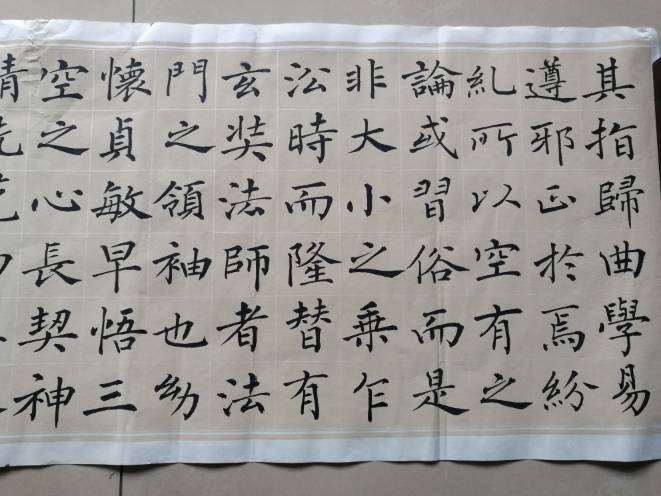 其指歸曲學易
遵邪正於焉紛
糺所以空有之
論或習俗而是
非大小之乘乍
沿時而隆替有
玄奘法師者法
門之領袖也幼
懷貞敏早悟三
空之心長契神